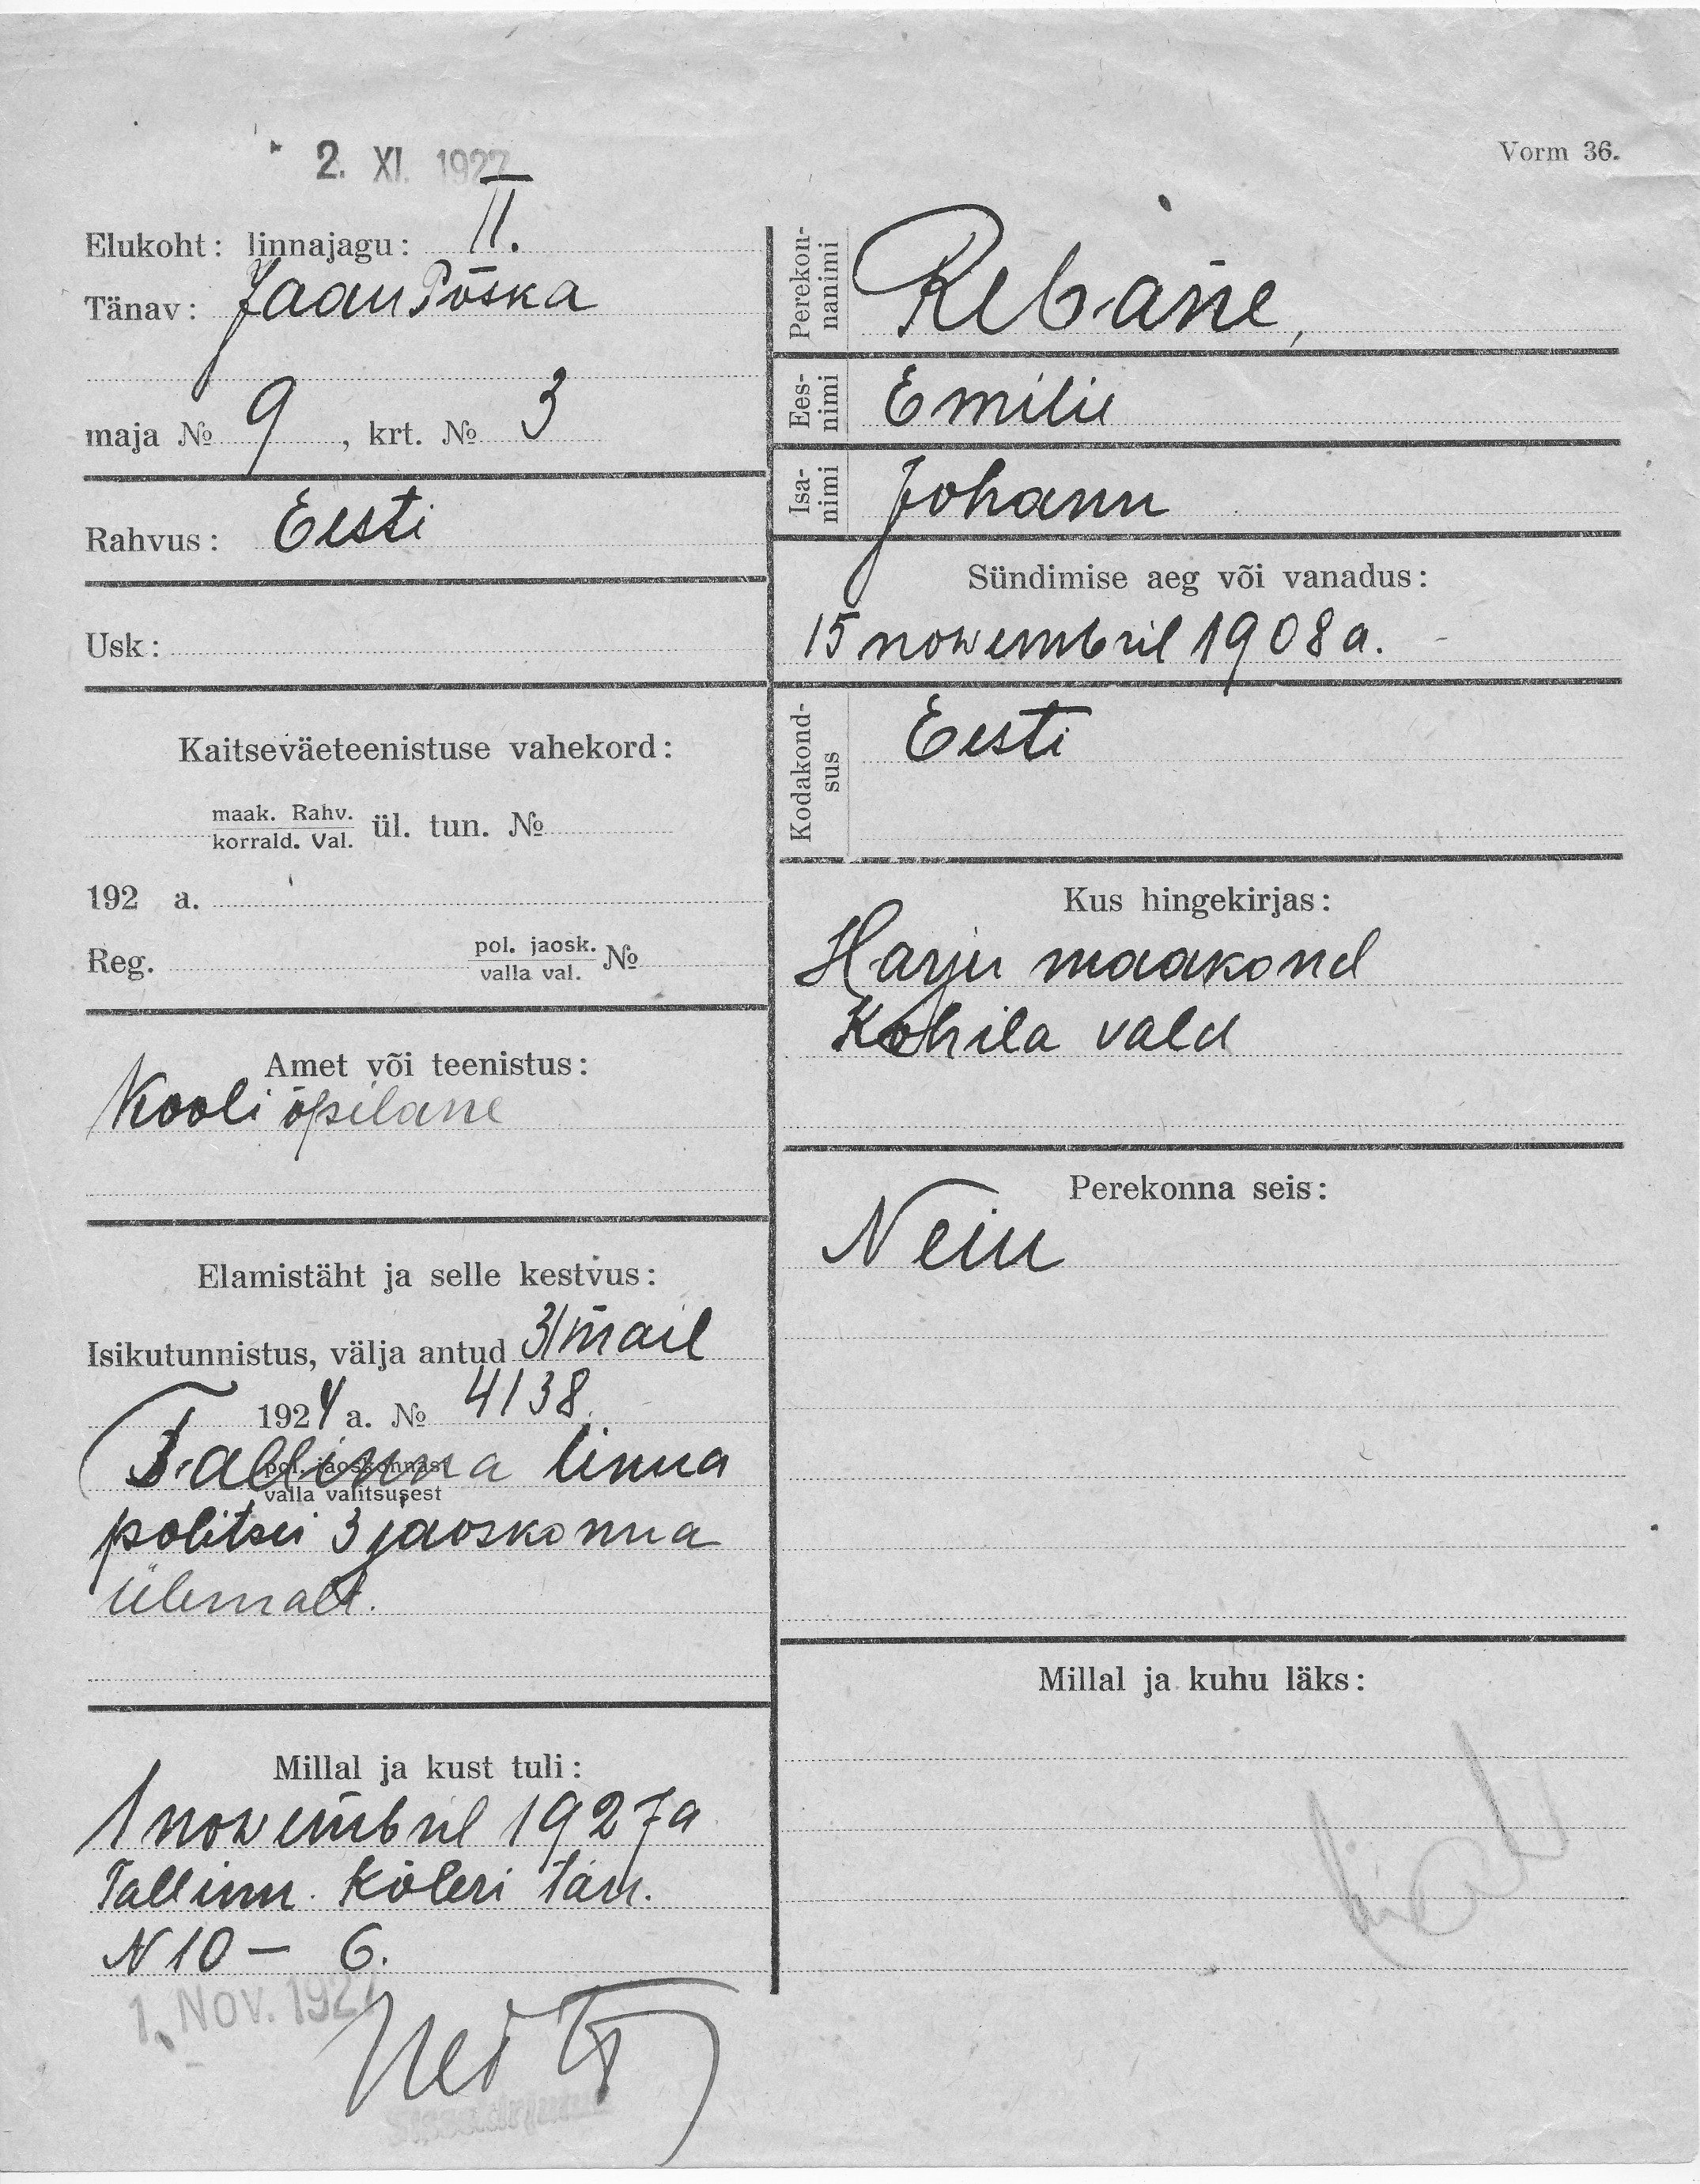 2. XI. 1927
Vorm 36.
Elukoht: linnajagu: II.
Tänav: Jaan Põska
maja № 9, krt. № 3
Rahvus: Eesti
Usk:
Kaitseväeteenistuse vahekord:
maak. Rahv.
korrald. Val. ül. tun. №
192 a.
Reg. pol. jaosk.
valla val. №
Amet või teenistus:
Kooli õpilane
Elamistäht ja selle kestvus:
Isikutunnistus, välja antud 31 mail
1924 a. № 4138
pol. jaoskonnast
valla valitsusest
Tallinna linna
politsei 3 jaoskonna
ülemalt.
Millal ja kust tuli:
1 nowembril 1927 a
Tallinn. Köleri tän.
N 10 – 6.
1. NOV. 1927
Perekon-
nanimi
Rebane,
Ees-
nimi
Emilie
Isa-
nimi
Johann
Sündimise aeg või vanadus:
15 nowembril 1908 a.
Kodakond-
sus
Eesti
Kus hingekirjas:
Harju maakond
Kohila vald
Perekonna seis:
Neiu
Millal ja kuhu läks: